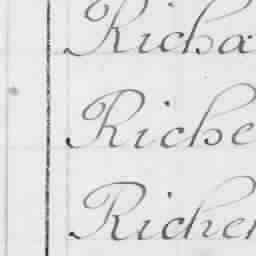 Richa
Riche
Richer